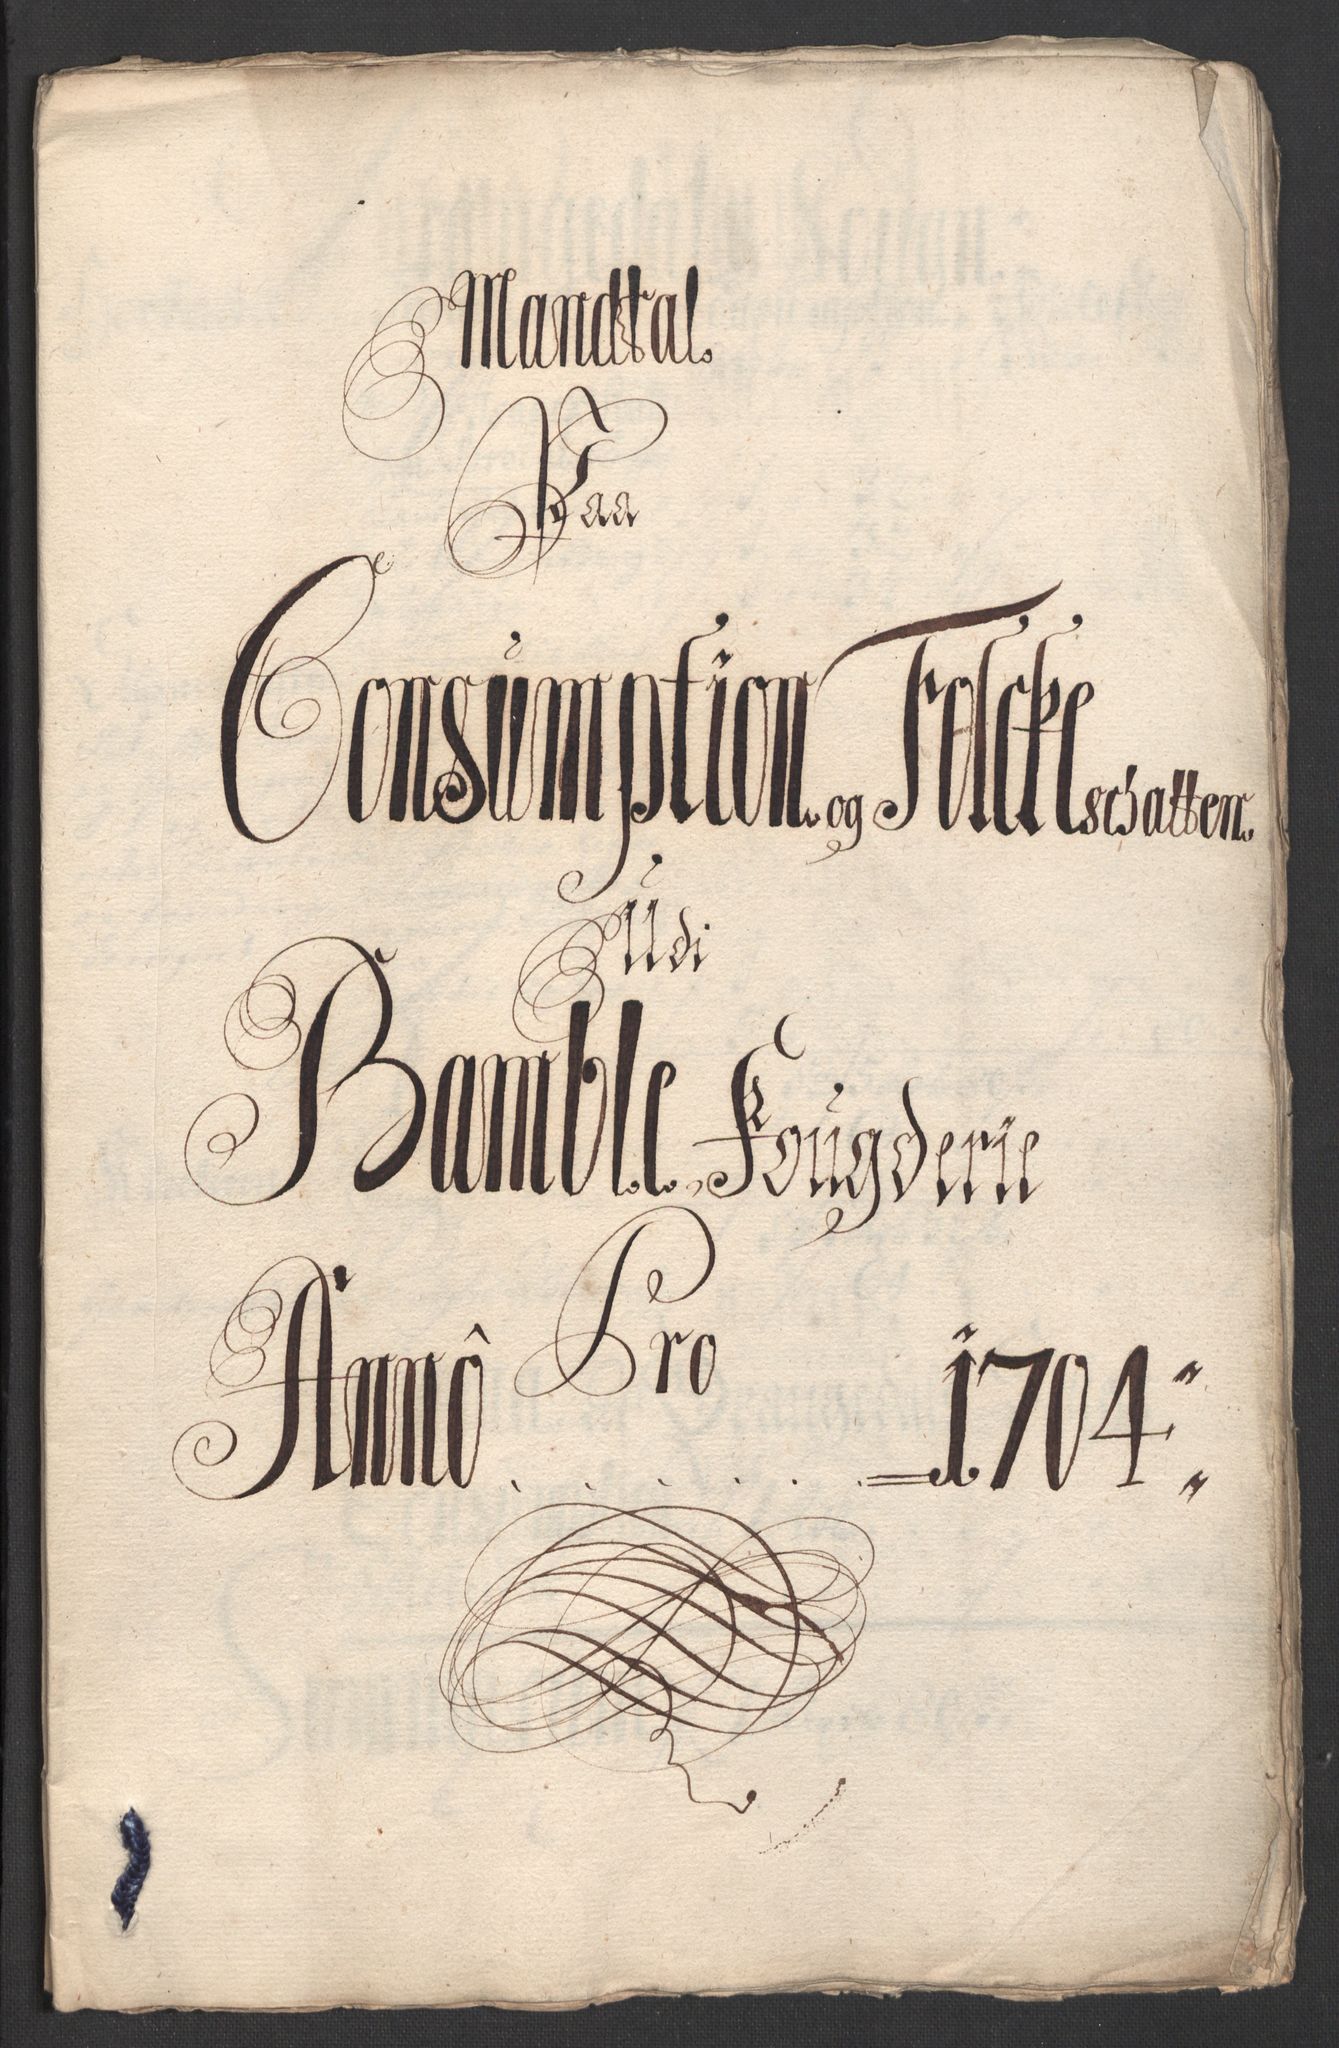 Mandtal
Paa
Consumption og Folckeschatten
Udi
Bamble Fougderie
Pro
Anno 1704